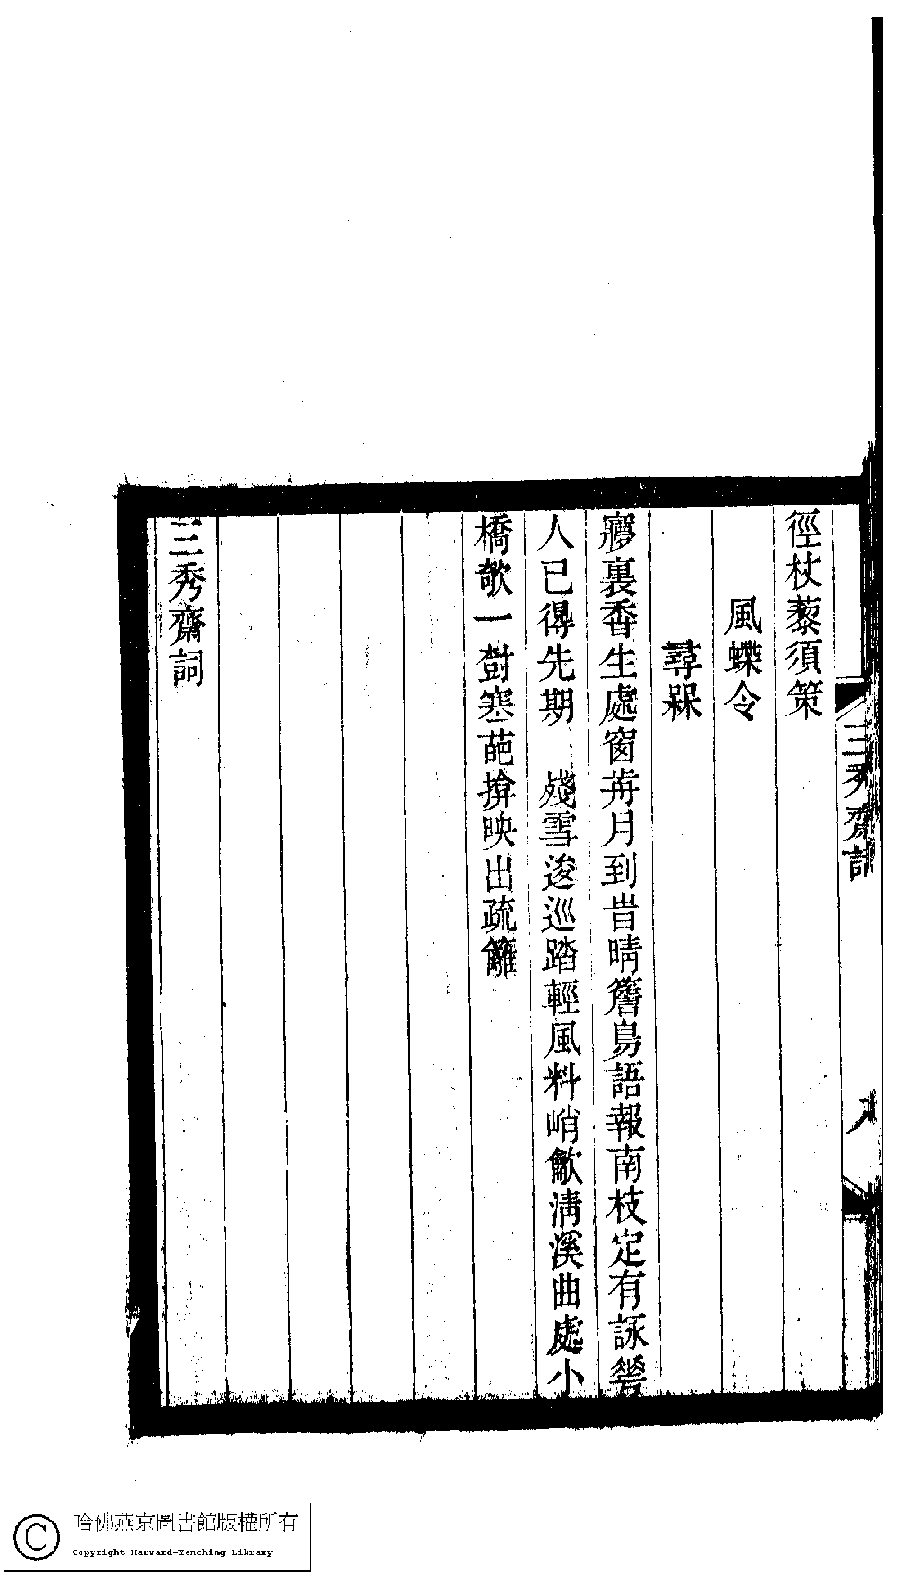 徑杖藜須策
風蝶令
尋槑
寢裏香生處窗歬月到旹晴簷鳥語報南枝定有詠
人已得先期　殘雪逡巡踏輕風料峭歈淸溪曲處小
橋欹一尌寒葩揜映出疏籬
三秀齋詞
三秀齋詞
八
哈佛燕京圖書館版權所有
Copyright Harvard-Yenching Library